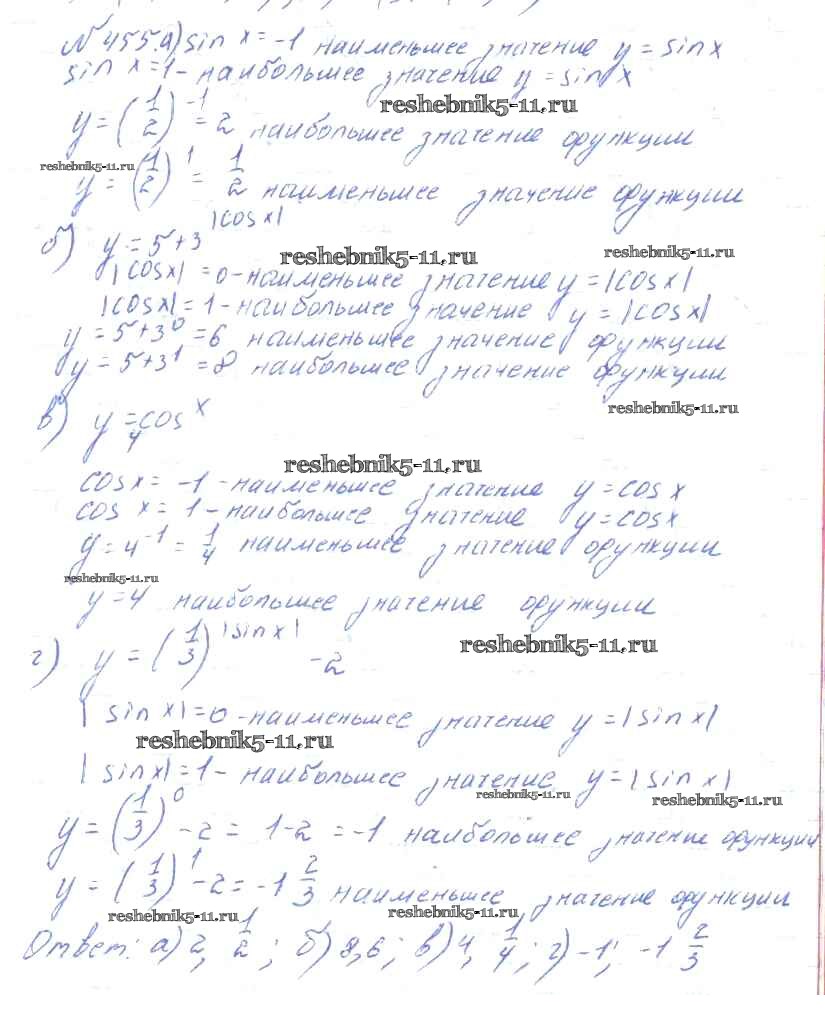 № 455.а) sin x = -1 наименьшее значение y = sin x
sin x = 1 - наибольшее значение y = sin x
reshebnik5-11.ru
y = (1/2)^-1 = 2 наибольшее значение функции
reshebnik5-11.ru
y = (1/2)^1 = 1/2 наименьшее значение функции
б) y = 5 + 3^|cos x|
reshebnik5-11.ru
reshebnik5-11.ru
|cos x| = 0 - наименьшее значение y = |cos x|
|cos x| = 1 - наибольшее значение y = |cos x|
y = 5 + 3^0 = 6 наименьшее значение функции
y = 5 + 3^1 = 8 наибольшее значение функции
reshebnik5-11.ru
в) y = 4 cos^x
reshebnik5-11.ru
cos x = -1 - наименьшее значение y = cos x
cos x = 1 - наибольшее значение y = cos x
y = 4^-1 = 1/4 наименьшее значение функции
reshebnik5-11.ru
y = 4 наибольшее значение функции
г) y = (1/3)^|sin x| - 2
reshebnik5-11.ru
|sin x| = 0 - наименьшее значение y = |sin x|
reshebnik5-11.ru
|sin x| = 1 - наибольшее значение y = |sin x|
reshebnik5-11.ru
reshebnik5-11.ru
y = (1/3)^0 - 2 = 1 - 2 = -1 наибольшее значение функции
y = (1/3)^1 - 2 = -1 2/3 наименьшее значение функции
reshebnik5-11.ru
reshebnik5-11.ru
Ответ: а) 2, 1/2; б) 8, 6; в) 4, 1/4; г) -1; -1 2/3